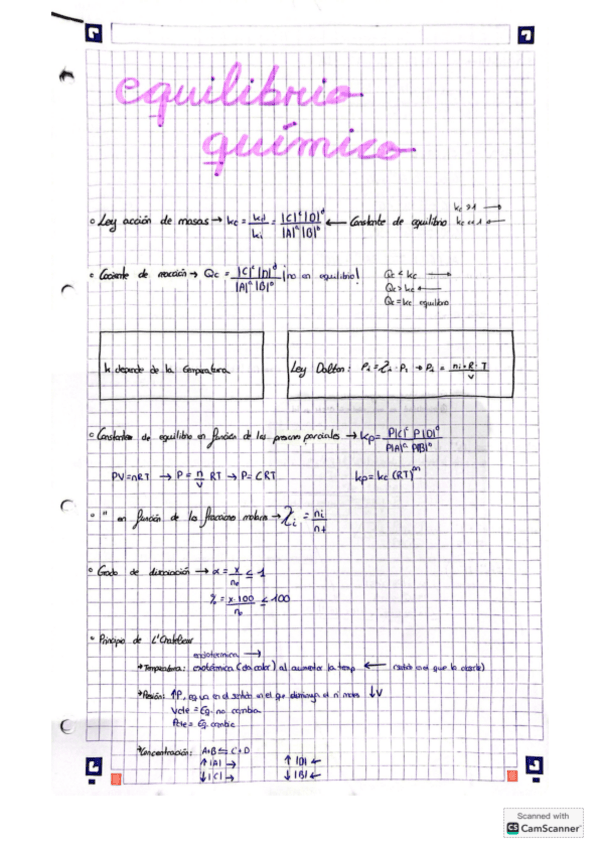 equilibrio
químico
Ley acción de masas → kc = kd/ki = |C|ᶜ|D|ᵈ / |A|ᵃ|B|ᵇ ← Constante de equilibrio
kc >1 →
kc <<1 ←
Cociente de reacción → Qc = |C|ᶜ|D|ᵈ / |A|ᵃ|B|ᵇ ¡no en equilibrio!
Qc < kc →
Qc > kc ←
Qc = kc equilibrio
k depende de la temperatura
Ley Dalton:
Constante de equilibrio en función de las presiones parciales → kp = P|C|ᶜ P|D|ᵈ / P|A|ᵃ P|B|ᵇ
PV = nRT → P = n/V RT → P = CRT
kp = kc (RT)
" en función de las fracciones molares → χi = ni/nt
Grado de disociación → α = x/n₀ ≤ 1
% = x·100/n₀ ≤ 100
Principio de L'Chatelier
endotérmica →
Temperatura: exotérmica (da calor) al aumentar la temp ←
Presión: ↑P, eq va en el sentido en el que disminuya el nº moles ↓V
Vcte = Eq. no cambia
Pcte = Eq. cambia
Concentración: A+B ⇆ C+D
↑|A| → ↑|D| ←
↓|C| → ↓|B| ←
Scanned with
CS CamScanner